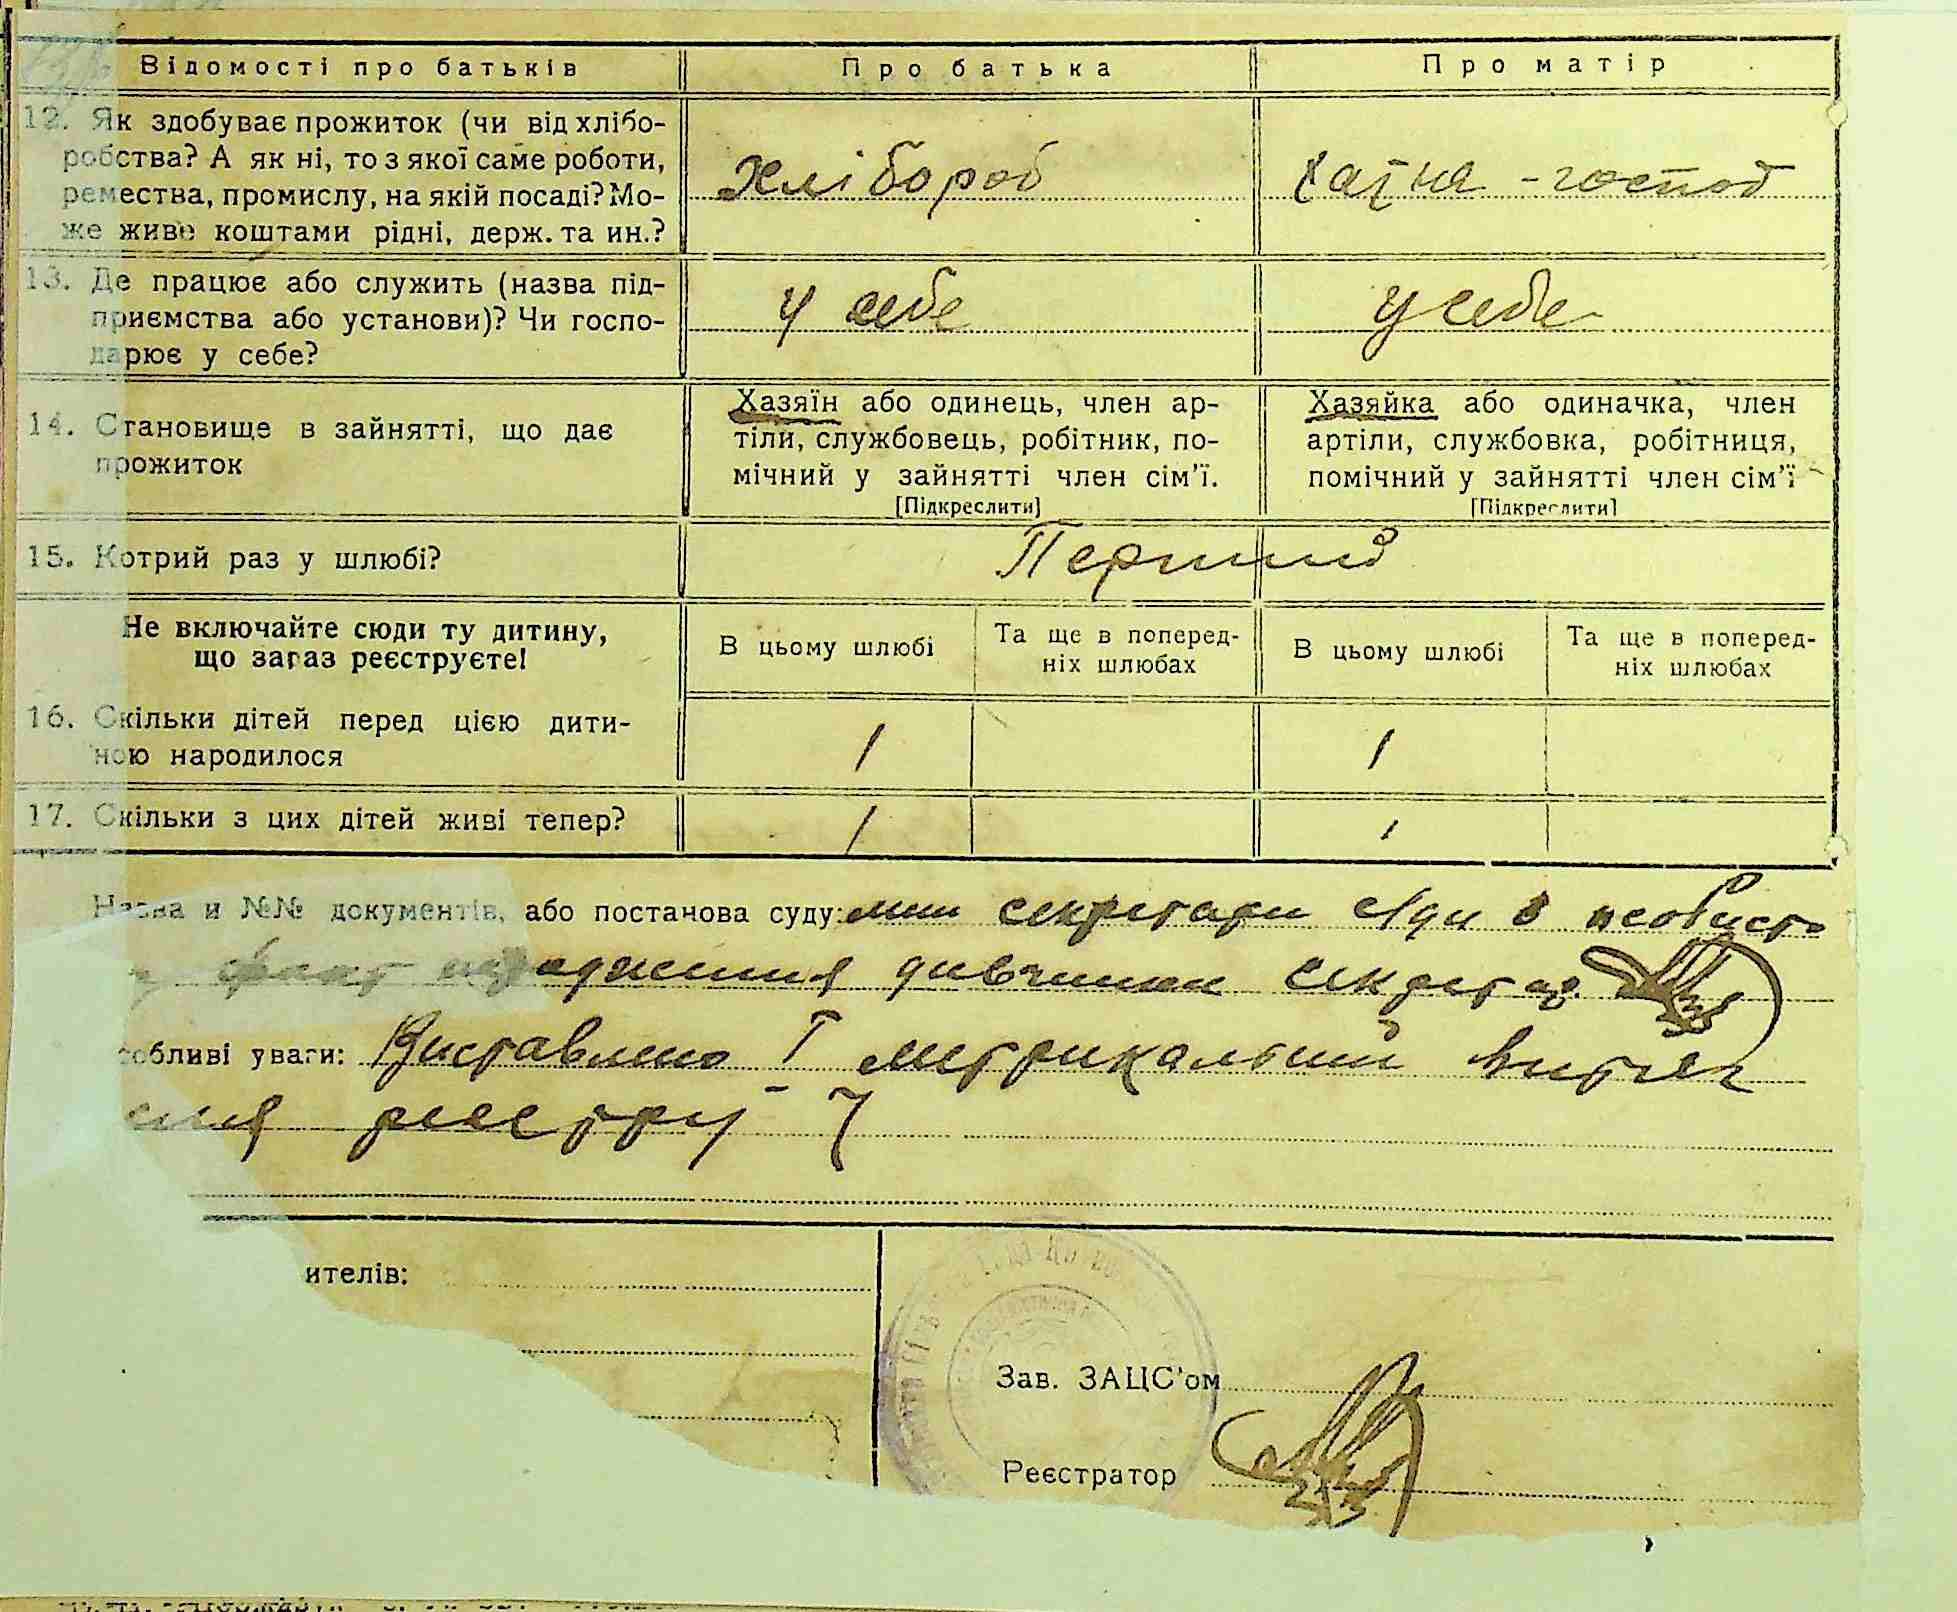 Відомості про батьків
Про батька
Про матір
12. Як здобуває прожиток (чи від хлібо-
робства? А як ні, то з якої саме роботи,
ремества, промислу, на якій посаді? Мо-
же живе коштами рідні, держ. та ин.?
хлібороб
хатня - господ
13. Де працює або служить (назва під-
приємства або установи)? Чи госпо-
дарює у себе?
у себе
у себе
14. Становище в зайнятті, що дає
прожиток
Хазяїн або одинець, член ар-
тіли, службовець, робітник, по-
мічний у зайнятті член сім'ї.
[Підкреслити]
Хазяйка або одиначка, член
артіли, службовка, робітниця,
помічний у зайнятті член сім'ї
[Підкреслити]
15. Котрий раз у шлюбі?
Перший
Не включайте сюди ту дитину,
що зараз реєструєте!
В цьому шлюбі
Та ще в поперед-
ніх шлюбах
В цьому шлюбі
Та ще в поперед-
ніх шлюбах
16. Скільки дітей перед цією дити-
ною народилося
1
1
17. Скільки з цих дітей живі тепер?
1
1
Назва и №№ документів, або постанова суду: мни секретари с/ди в особисто
факт народження дивчини секретар
собливі уваги: Виставлено I метрикальний витяг
реєстру 7
ителів:
Зав. ЗАЦС'ом
Реєстратор